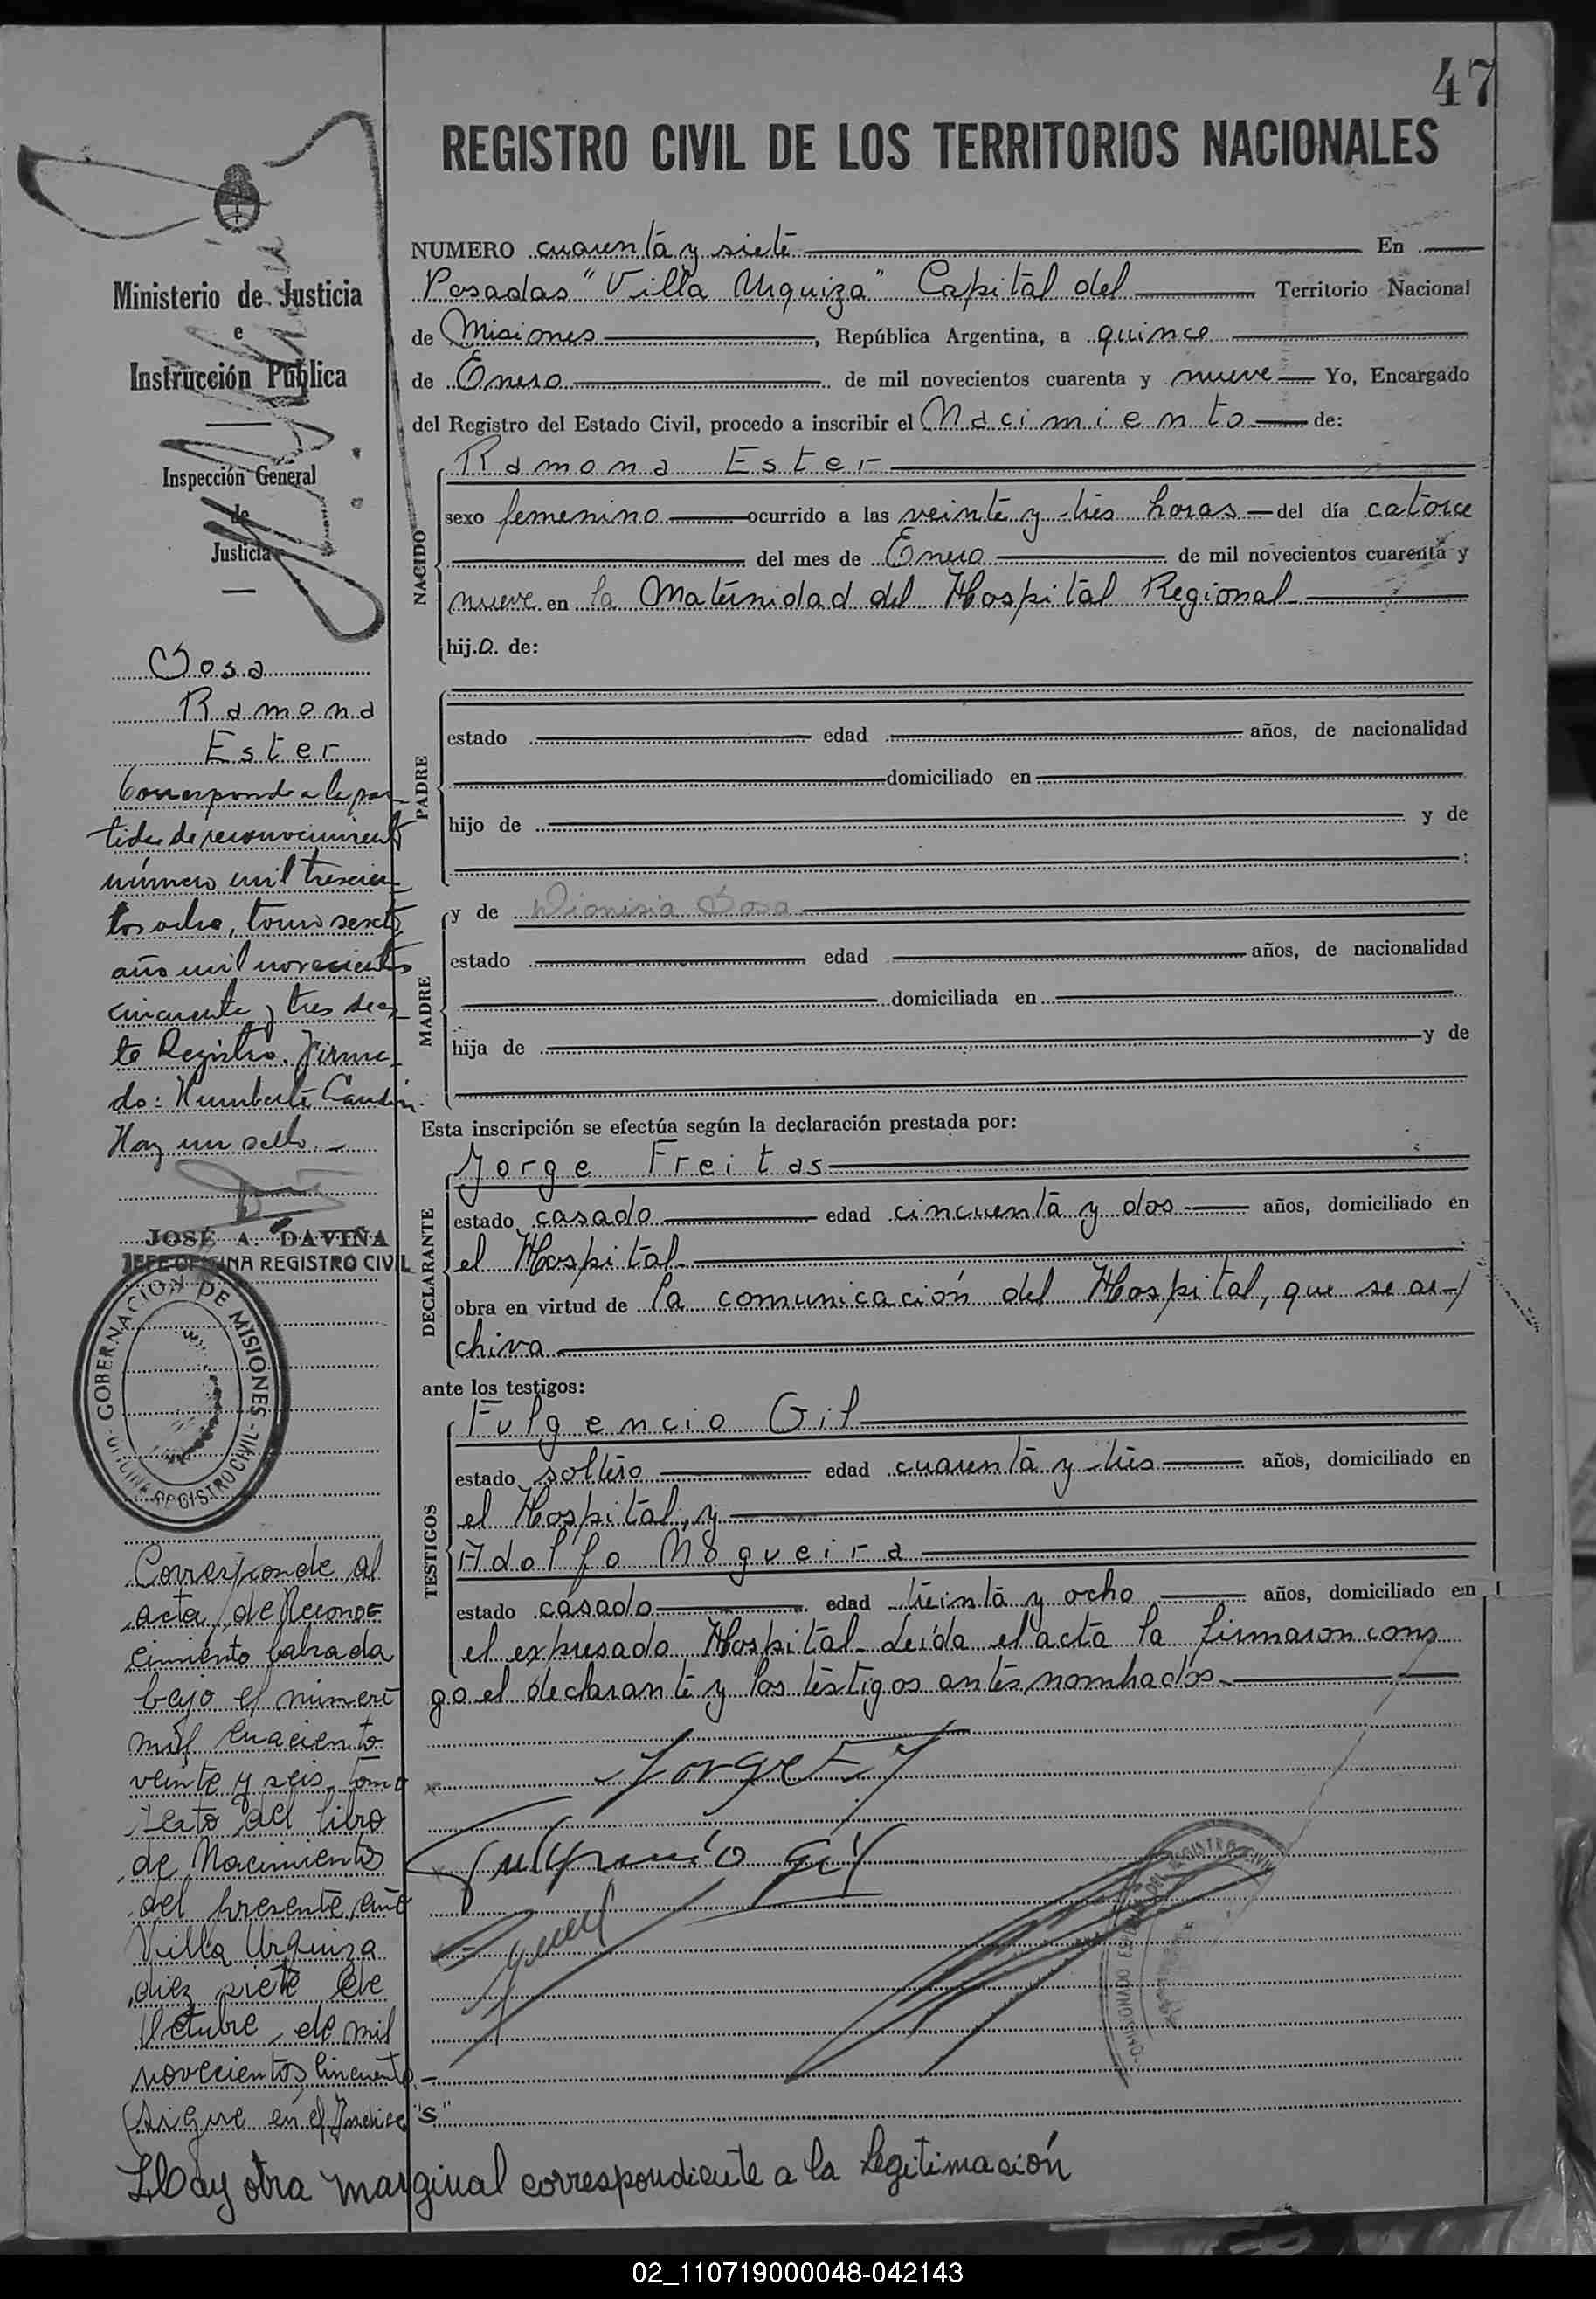 47
REGISTRO CIVIL DE LOS TERRITORIOS NACIONALES
Ministerio de Justicia
e
Instrucción Pública
Inspección General
de
Justicia
Sosa
Ramona
Ester
Corresponde a la par-
tida de reconocimiento
número mil trescien-
tos ocho, tomo sexto,
año mil novecientos
cincuenta y tres de es-
te Registro. Firma-
do: Humberto
Hay un sello.-
JOSÉ A. DAVIÑA
JEFE OFICINA REGISTRO CIVIL
GOBERNACION DE MISIONES
- OFICINA REGISTRO CIVIL -
Corresponde al
acta de Recono-
cimiento labrada
bajo el número
mil
veinte y seis tomo
sexto del libro
de Nacimientos
del presente año
Villa Urquiza
diez siete de
Octubre de mil
novecientos cincuenta.-
(Sigue en el Indice "S"
NUMERO cuarenta y siete En
Posadas "Villa Urquiza" Capital del Territorio Nacional
de Misiones, República Argentina, a quince
de Enero de mil novecientos cuarenta y nueve Yo, Encargado
del Registro del Estado Civil, procedo a inscribir el Nacimiento de:
NACIDO
Ramona Ester
sexo femenino ocurrido a las veinte y tres horas del día catorce
del mes de Enero de mil novecientos cuarenta y
nueve en la Maternidad del Hospital Regional
hija de:
PADRE
estado edad años, de nacionalidad
domiciliado en
hijo de y de
:
MADRE
y de Dionisia Sosa
estado edad años, de nacionalidad
domiciliada en
hija de y de
Esta inscripción se efectúa según la declaración prestada por:
DECLARANTE
Jorge Freitas
estado casado edad cincuenta y dos años, domiciliado en
el Hospital
obra en virtud de la comunicación del Hospital, que se ar-
chiva
ante los testigos:
TESTIGOS
Fulgencio Gil
estado soltero edad cuarenta y tres años, domiciliado en
el Hospital, y
Adolfo Nogueira
estado casado edad treinta y ocho años, domiciliado en
el expresado Hospital. Leída el acta la firmaron conmi
go el declarante y los testigos antes nombrados.
Jorge F
Fulgencio Gil
Hay otra marginal correspondiente a la legitimación
02_110719000048-042143